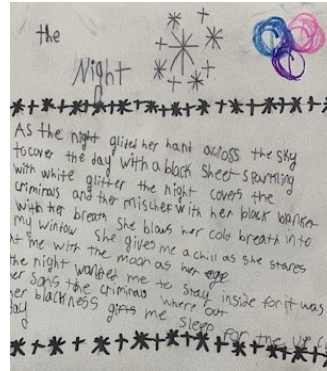 the
Night
As the night glided her hand across the sky
to cover the day with a black sheet sparkling
with white glitter the night covers the
criminals and ther mischer with her black blanket
with her breath she blows her cold breath into
my window she gives me a chill as she stares
at me with the moon as her
the night wanted me to stay inside for it was
her sons the criminals where out
her blackness gifts me sleep for the
day